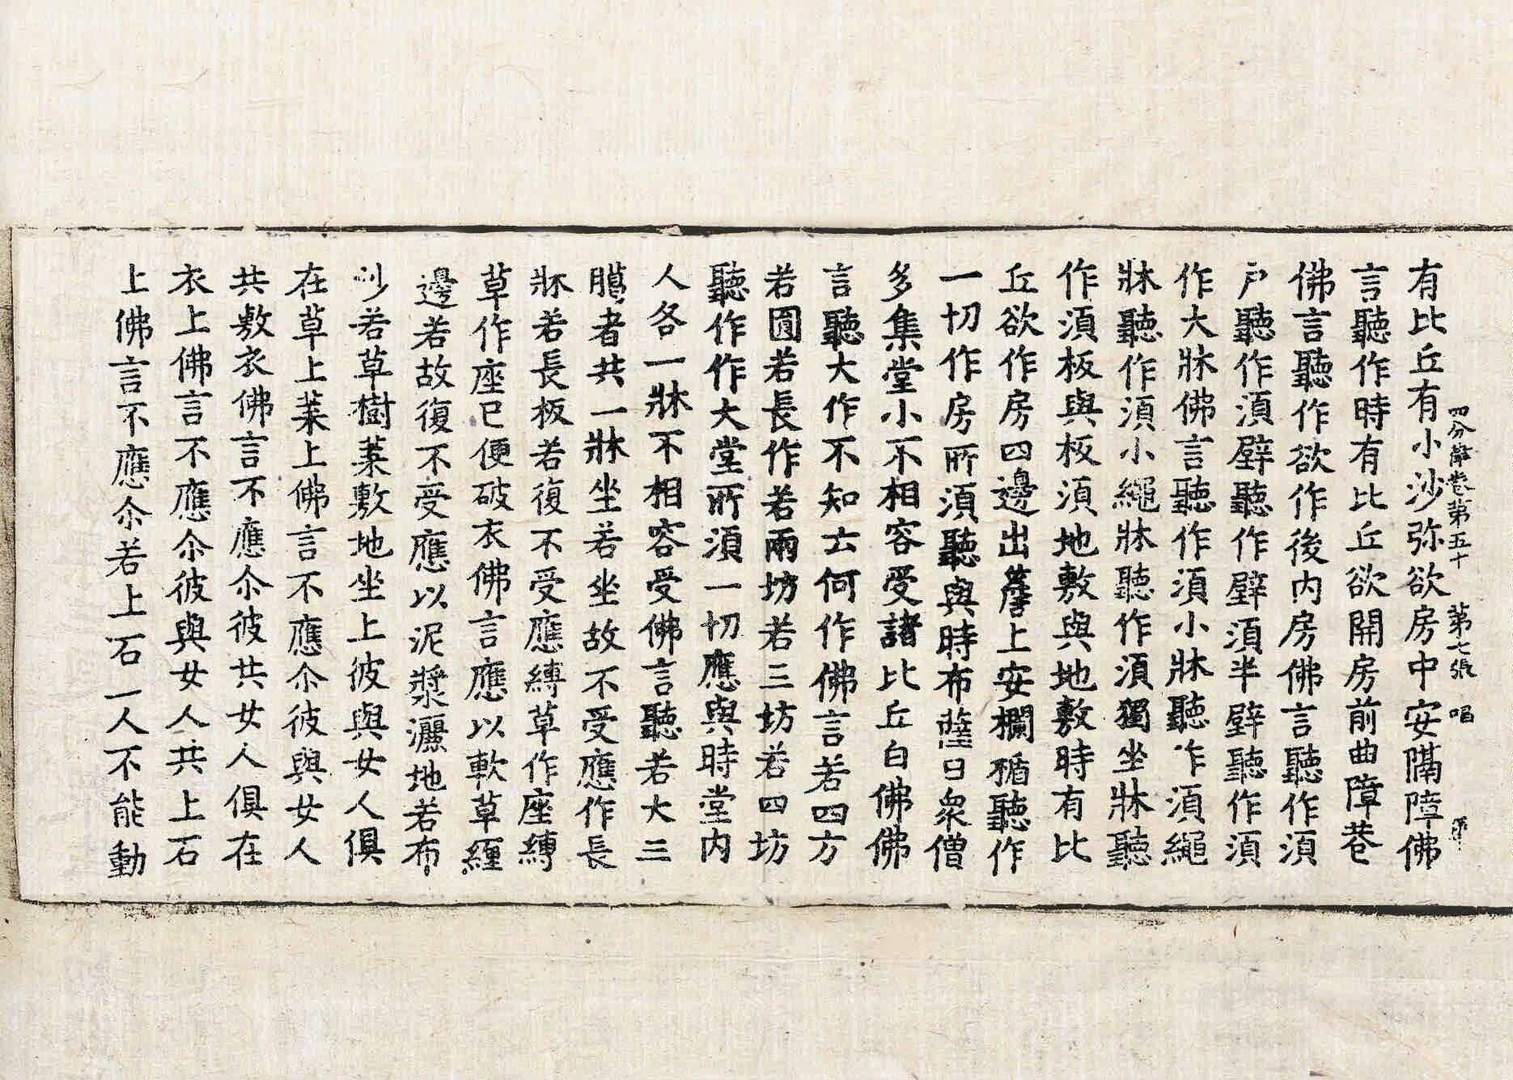 四分律卷第五十 第七張 唱
有比丘有小沙弥欲房中安隔障佛
言聽作時有比丘欲開房前曲障巷
佛言聽作欲作後內房佛言聽作須
戶聽作須壁聽作壁須半壁聽作須
作大牀佛言聽作須小牀聽作須繩
牀聽作須小繩牀聽作須獨坐牀聽
作須板與板須地敷與地敷時有比
丘欲作房四邊出上安欄楯聽作
一切作房所須聽與時布薩日衆僧
多集堂小不相容受諸比丘白佛佛
言聽大作不知云何作佛言若四方
若圓若長作若兩坊若三坊若四坊
聽作作大堂所須一切應與時堂內
人各一牀不相容受佛言聽若大三
臈者共一牀坐若坐故不受應作長
牀若長板若復不受應縛草作座縛
草作座已便破衣佛言應以軟草纏
邊若故復不受應以泥漿灑地若布
沙若草樹葉敷地坐上彼與女人俱
在草上葉上佛言不應尒彼與女人
共敷衣佛言不應尒彼共女人俱在
衣上佛言不應尒彼與女人共上石
上佛言不應尒若上石一人不能動